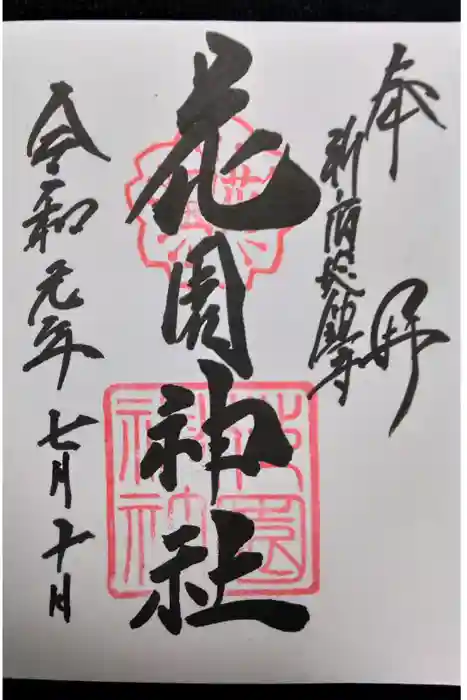 奉拝
新宿総鎮守
花園神社
令和元年七月十日
花園
花園
神社